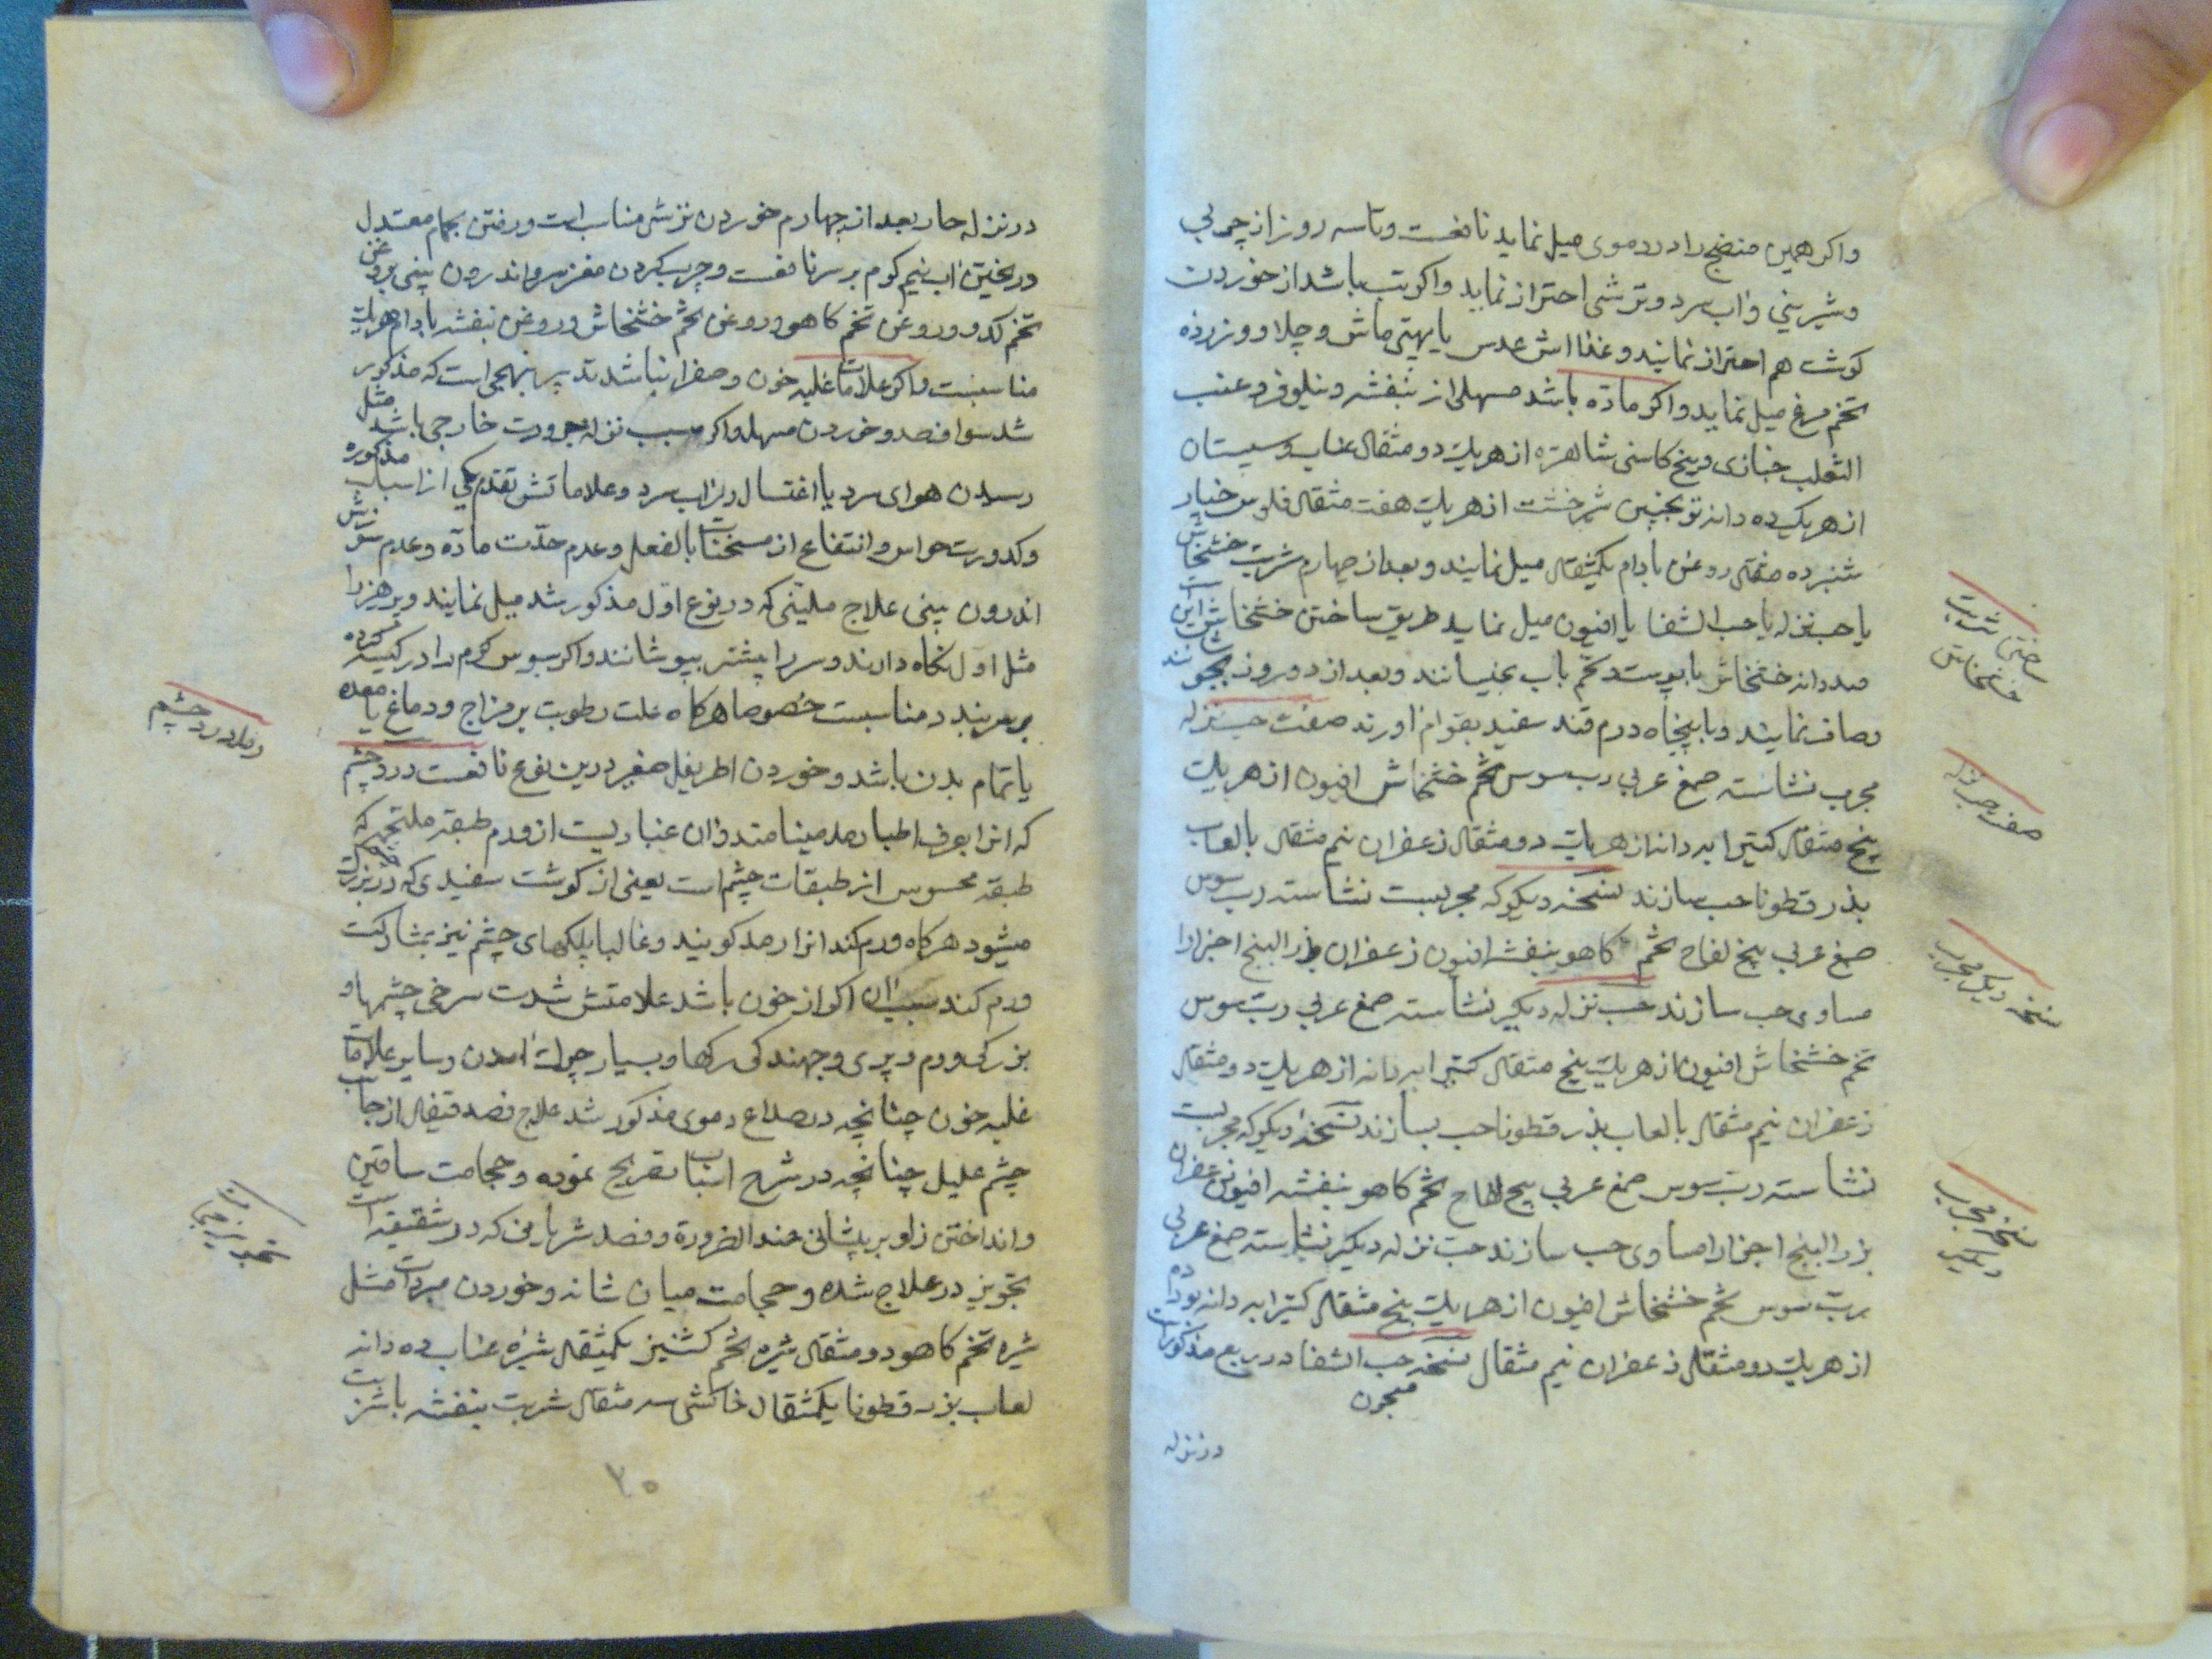 واكر همين منضج را در دموی ميل نمايد نافعست وتا سه روز از چربي
وشيريني واب سرد وترشی احتراز نمايد واكر تب باشد از خوردن
كوشت هم احتراز نمايند وغذا اش عدس يا پهتی ماش وچلاو وزرده
تخم مرغ ميل نمايد واكر ماده باشد مسهلی از بنفشه ونيلوفر وعنب
الثعلب خبازی وبيخ كاسنی شاهتره از هريك دو مثقال عناب وسپستان
از هريك ده دانه ترنجبين شيرخشت از هريك هفت مثقال فلوس خيار
شنبر ده مثقال روغن بادام يكمثقال ميل نمايند وبعد از چهارم شربت خشخاش
يا حب نزله يا حب الشفا يا افيون ميل نمايد طريق ساختن خشخاش اين است
صد دانه خشخاش با پوست وتخم باب بخيسانند وبعد از دو روز بجوشانند
وصاف نمايند وبا پنجاه درم قند سفيد بقوام اورند صفت حب نزله
مجرب نشاسته صمغ عربي رب سوس تخم خشخاش افيون از هريك
پنج مثقال كتيرا بهدانه از هريك دو مثقال زعفران نيم مثقال بالعاب
بذر قطونا حب سازند نسخه ديكر كه مجربست نشاسته رب سوس
صمغ عربي بيخ لفاح تخم كاهو بنفشه افيون زعفران بذر البنج اجزا را
مساوی حب سازند حب نزله ديكر نشاسته صمغ عربي رب سوس
تخم خشخاش افيون از هريك پنج مثقال كتيرا بهدانه از هريك دو مثقال
زعفران نيم مثقال بالعاب بذر قطونا حب بسازند نسخه ديكر كه مجربست
نشاسته رب سوس صمغ عربي بيخ لفاح تخم كاهو بنفشه افيون زعفران
بزر البنج اجزا را مساوی حب سازند حب نزله ديكر نشاسته صمغ عربي
رب سوس تخم خشخاش افيون از هريك پنج مثقال كتيرا بهدانه
از هريك دو مثقال زعفران نيم مثقال نسخه حب الشفا در ربع مذكور است
معجون
در نزله
ساختن شربت
خشخاش
صفت حب نزله
نسخه ديكر مجرب
نسخه مجرب
ديكر
در نزله حار بعد از چهارم خوردن ترشی مناسب است ورفتن بحمام معتدل
وريختن اب نيم كرم بر سر نافعست وچرب كردن مغز سر واندرون بينی بروغن
تخم كدو وروغن تخم كاهو وروغن تخم خشخاش وروغن بنفشه بادام هريك
مناسبست واكر علامات غلبه خون وصفرا نباشد تدبير بنهجی است كه مذكور
شد سوا فصد وخوردن مسهل واكر سبب نزله برودت خارجی باشد مثل
رسيدن هوای سرد يا اغتسال در اب سرد وعلاماتش تقدم يكي از اسباب مذكوره
وكدورت حواس وانتفاع از مسخنات بالفعل وعدم حدّت ماده وعدم سوزش
اندرون بينی علاج ملينی كه در نوع اول مذكور شد ميل نمايند وپرهيز را
مثل اول نكاه دارند وسر را بيشتر بپوشانند واكر سبوس كرم را در كيسه كرده
بر سر بندند مناسبست خصوصا هركاه غلبت رطوبت بر مزاج ودماغ يا معده
يا تمام بدن باشد وخوردن اطريفل صغير درين نوع نافعست درد چشم
كه انرا بعرف اطبا رمد مينامند وان عبارتست از ورم طبقه ملتحمه كه
طبقه محسوس از طبقات چشم است يعنی از كوشت سفيدی كه
ميشود هركاه ورم كند انرا رمد كويند وغالبا پلكهای چشم نيز بمشاركت
ورم كند سبب ان اكر از خون باشد علامتش شدت سرخی چشمها و
بزركی ورم وپری وجهندكی ركها وبسيار چرك امدن وساير علامات
غلبه خون چنانچه در صداع دموی مذكور شد علاج فصد قيفال از جانب
چشم عليل چنانچه در شرح اسباب تصريح نموده وحجامت ساقين
وانداختن زلو بر پيشانی عند الضرورة وفصد شريانی كه در شقيقه است
تجويز در علاج شده وحجامت ميان شانه وخوردن مبردات مثل
شيره تخم كاهو دو مثقال شيره تخم كشنيز يكمثقال شيره عناب ده دانه
لعاب بذر قطونا يكمثقال خاكشی سه مثقال شربت بنفشه با شربت
رمد درد چشم
٢٥